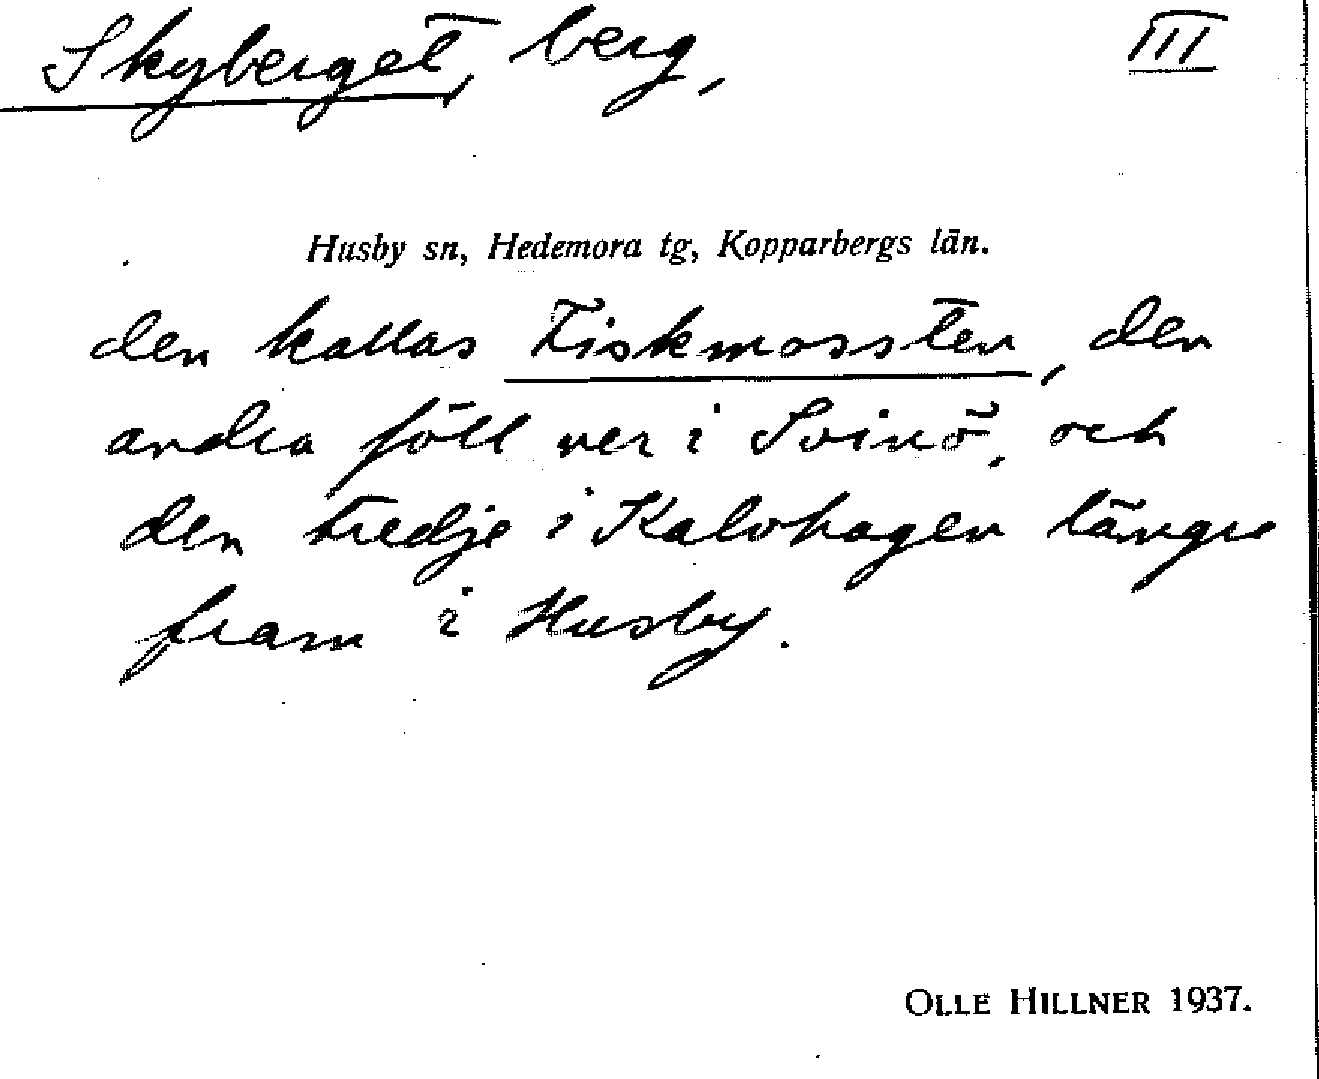 Skyberget, berg, III
Husby sn, Hedemora tg, Kopparbergs län.
den kallas Fiskmossten, den
andra föll ner i Svinö, och
den tredje i Kalvhagen längre
fram i Husby.
OLLE HILLNER 1937.